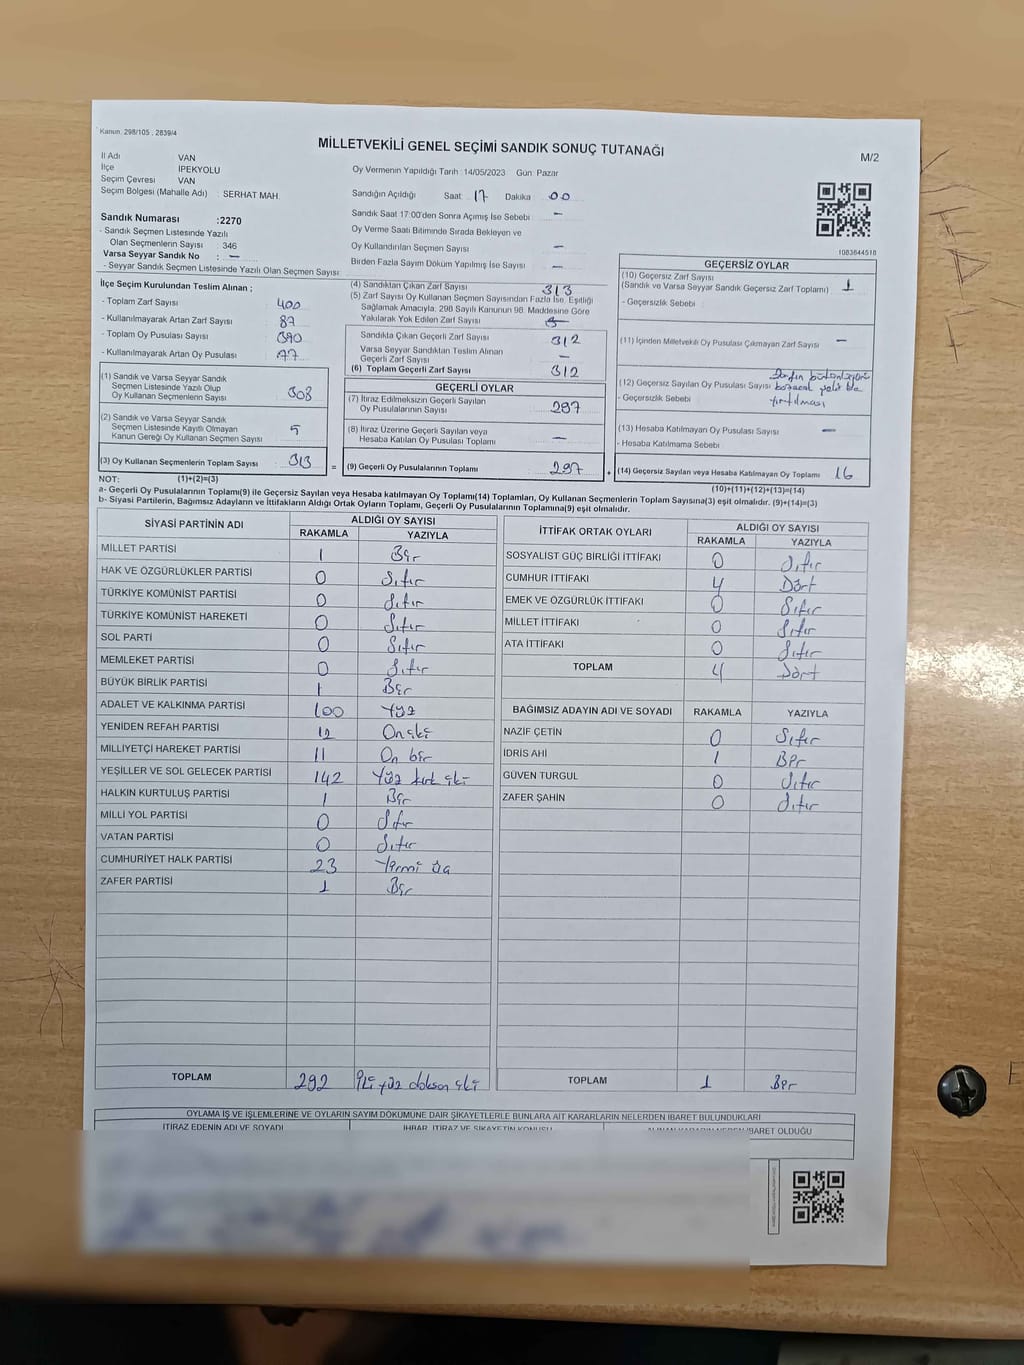 Kanun. 298/105 , 2839/4
MİLLETVEKİLİ GENEL SEÇİMİ SANDIK SONUÇ TUTANAĞI
M/2
İl Adı VAN
İlçe İPEKYOLU
Seçim Çevresi VAN
Seçim Bölgesi (Mahalle Adı) : SERHAT MAH.
Sandık Numarası :2270
- Sandık Seçmen Listesinde Yazılı
Olan Seçmenlerin Sayısı : 346
Varsa Seyyar Sandık No : —
- Seyyar Sandık Seçmen Listesinde Yazılı Olan Seçmen Sayısı:
Oy Vermenin Yapıldığı Tarih :14/05/2023 Gün: Pazar
Sandığın Açıldığı Saat 17 Dakika 00
Sandık Saat 17:00'den Sonra Açımış İse Sebebi —
Oy Verme Saati Bitiminde Sırada Bekleyen ve
Oy Kullandırılan Seçmen Sayısı —
Birden Fazla Sayım Döküm Yapılmış İse Sayısı —
1083844518
İlçe Seçim Kurulundan Teslim Alınan ;
- Toplam Zarf Sayısı 400
- Kullanılmayarak Artan Zarf Sayısı 87
- Toplam Oy Pusulası Sayısı 390
- Kullanılmayarak Artan Oy Pusulası 77
(1) Sandık ve Varsa Seyyar Sandık
Seçmen Listesinde Yazılı Olup
Oy Kullanan Seçmenlerin Sayısı 308
(2) Sandık ve Varsa Seyyar Sandık
Seçmen Listesinde Kayıtlı Olmayan
Kanun Gereği Oy Kullanan Seçmen Sayısı 5
(3) Oy Kullanan Seçmenlerin Toplam Sayısı 313
(4) Sandıktan Çıkan Zarf Sayısı 313
(5) Zarf Sayısı Oy Kullanan Seçmen Sayısından Fazla İse, Eşitliği
Sağlamak Amacıyla, 298 Sayılı Kanunun 98. Maddesine Göre
Yakılarak Yok Edilen Zarf Sayısı
Sandıkta Çıkan Geçerli Zarf Sayısı 312
Varsa Seyyar Sandıktan Teslim Alınan
Geçerli Zarf Sayısı —
(6) Toplam Geçerli Zarf Sayısı 312
GEÇERLİ OYLAR
(7) İtiraz Edilmeksizin Geçerli Sayılan
Oy Pusulalarının Sayısı 297
(8) İtiraz Üzerine Geçerli Sayılan veya
Hesaba Katılan Oy Pusulası Toplamı —
= (9) Geçerli Oy Pusulalarının Toplamı 297
GEÇERSİZ OYLAR
(10) Geçersiz Zarf Sayısı
(Sandık ve Varsa Seyyar Sandık Geçersiz Zarf Toplamı) 1
- Geçersizlik Sebebi :
(11) İçinden Milletvekili Oy Pusulası Çıkmayan Zarf Sayısı —
(12) Geçersiz Sayılan Oy Pusulası Sayısı
- Geçersizlik Sebebi
Zarfın bütünlüğünü
bozacak şekilde
yırtılması
(13) Hesaba Katılmayan Oy Pusulası Sayısı —
- Hesaba Katılmama Sebebi
+ (14) Geçersiz Sayılan veya Hesaba Katılmayan Oy Toplamı 16
NOT: (1)+(2)=(3) (10)+(11)+(12)+(13)=(14)
a- Geçerli Oy Pusulalarının Toplamı(9) ile Geçersiz Sayılan veya Hesaba katılmayan Oy Toplamı(14) Toplamları, Oy Kullanan Seçmenlerin Toplam Sayısına(3) eşit olmalıdır. (9)+(14)=(3)
b- Siyasi Partilerin, Bağımsız Adayların ve İttifakların Aldığı Ortak Oyların Toplamı, Geçerli Oy Pusulalarının Toplamına(9) eşit olmalıdır.
SİYASİ PARTİNİN ADI ALDIĞI OY SAYISI
RAKAMLA YAZIYLA
MİLLET PARTİSİ 1 Bir
HAK VE ÖZGÜRLÜKLER PARTİSİ 0 Sıfır
TÜRKİYE KOMÜNİST PARTİSİ 0 Sıfır
TÜRKİYE KOMÜNİST HAREKETİ 0 Sıfır
SOL PARTİ 0 Sıfır
MEMLEKET PARTİSİ 0 Sıfır
BÜYÜK BİRLİK PARTİSİ 1 Bir
ADALET VE KALKINMA PARTİSİ 100 Yüz
YENİDEN REFAH PARTİSİ 12 On iki
MİLLİYETÇİ HAREKET PARTİSİ 11 On bir
YEŞİLLER VE SOL GELECEK PARTİSİ 142 Yüz kırk iki
HALKIN KURTULUŞ PARTİSİ 1 Bir
MİLLİ YOL PARTİSİ 0 Sıfır
VATAN PARTİSİ 0 Sıfır
CUMHURİYET HALK PARTİSİ 23 Yirmi üç
ZAFER PARTİSİ 1 Bir
TOPLAM 292 İki yüz doksan iki
İTTİFAK ORTAK OYLARI ALDIĞI OY SAYISI
RAKAMLA YAZIYLA
SOSYALİST GÜÇ BİRLİĞİ İTTİFAKI 0 Sıfır
CUMHUR İTTİFAKI 4 Dört
EMEK VE ÖZGÜRLÜK İTTİFAKI 0 Sıfır
MİLLET İTTİFAKI 0 Sıfır
ATA İTTİFAKI 0 Sıfır
TOPLAM 4 Dört
BAĞIMSIZ ADAYIN ADI VE SOYADI RAKAMLA YAZIYLA
NAZİF ÇETİN 0 Sıfır
İDRİS AHİ 1 Bir
GÜVEN TURGUL 0 Sıfır
ZAFER ŞAHİN 0 Sıfır
TOPLAM 1 Bir
OYLAMA İŞ VE İŞLEMLERİNE VE OYLARIN SAYIM DÖKÜMÜNE DAİR ŞİKAYETLERLE BUNLARA AİT KARARLARIN NELERDEN İBARET BULUNDUKLARI
İTİRAZ EDENİN ADI VE SOYADI İHBAR, İTİRAZ VE ŞİKAYETİN KONUSU İBARET OLDUĞU